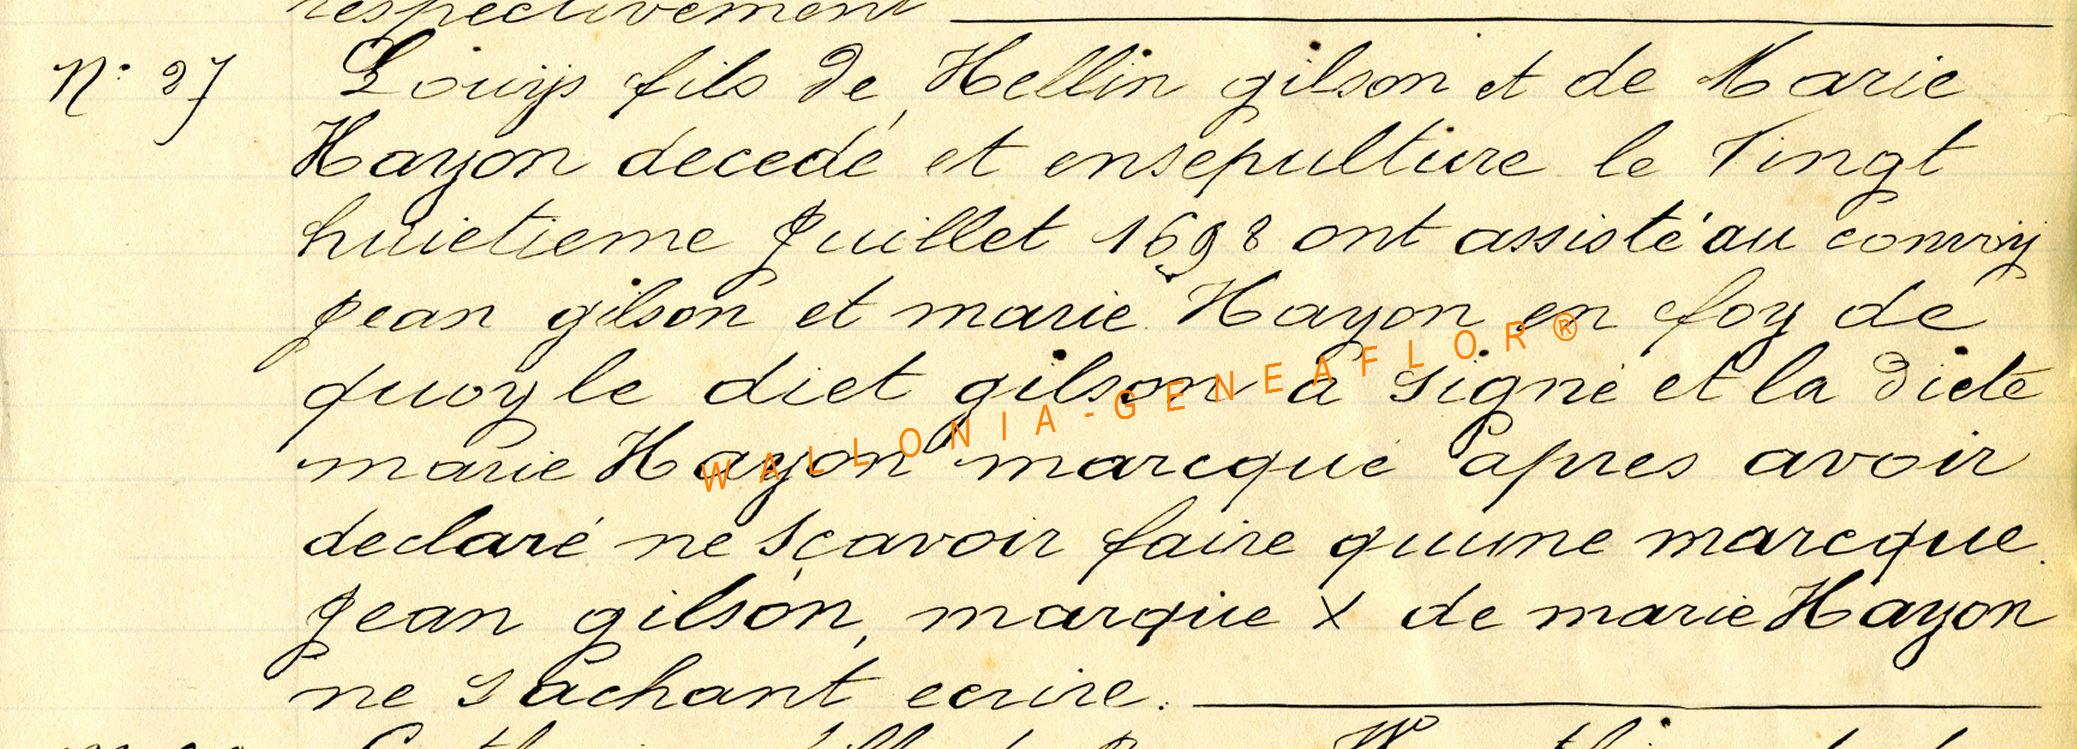 respectivement
N° 27 Louijs fils de Hellin gilson et de Marie
Hayon decedé et ensepulture le Vingt
huietieme Juillet 1698 ont assisté au convoy
Jean gilson et marie Hayon en foy de
quoy le diet gilson a signé et la dicte
marie Hayon marcqué apres avoir
declaré ne sçavoir faire quune marcque.
Jean gilson, marque X de marie Hayon
ne sachant ecrire.
WALLONIA-GENEAFLOR®